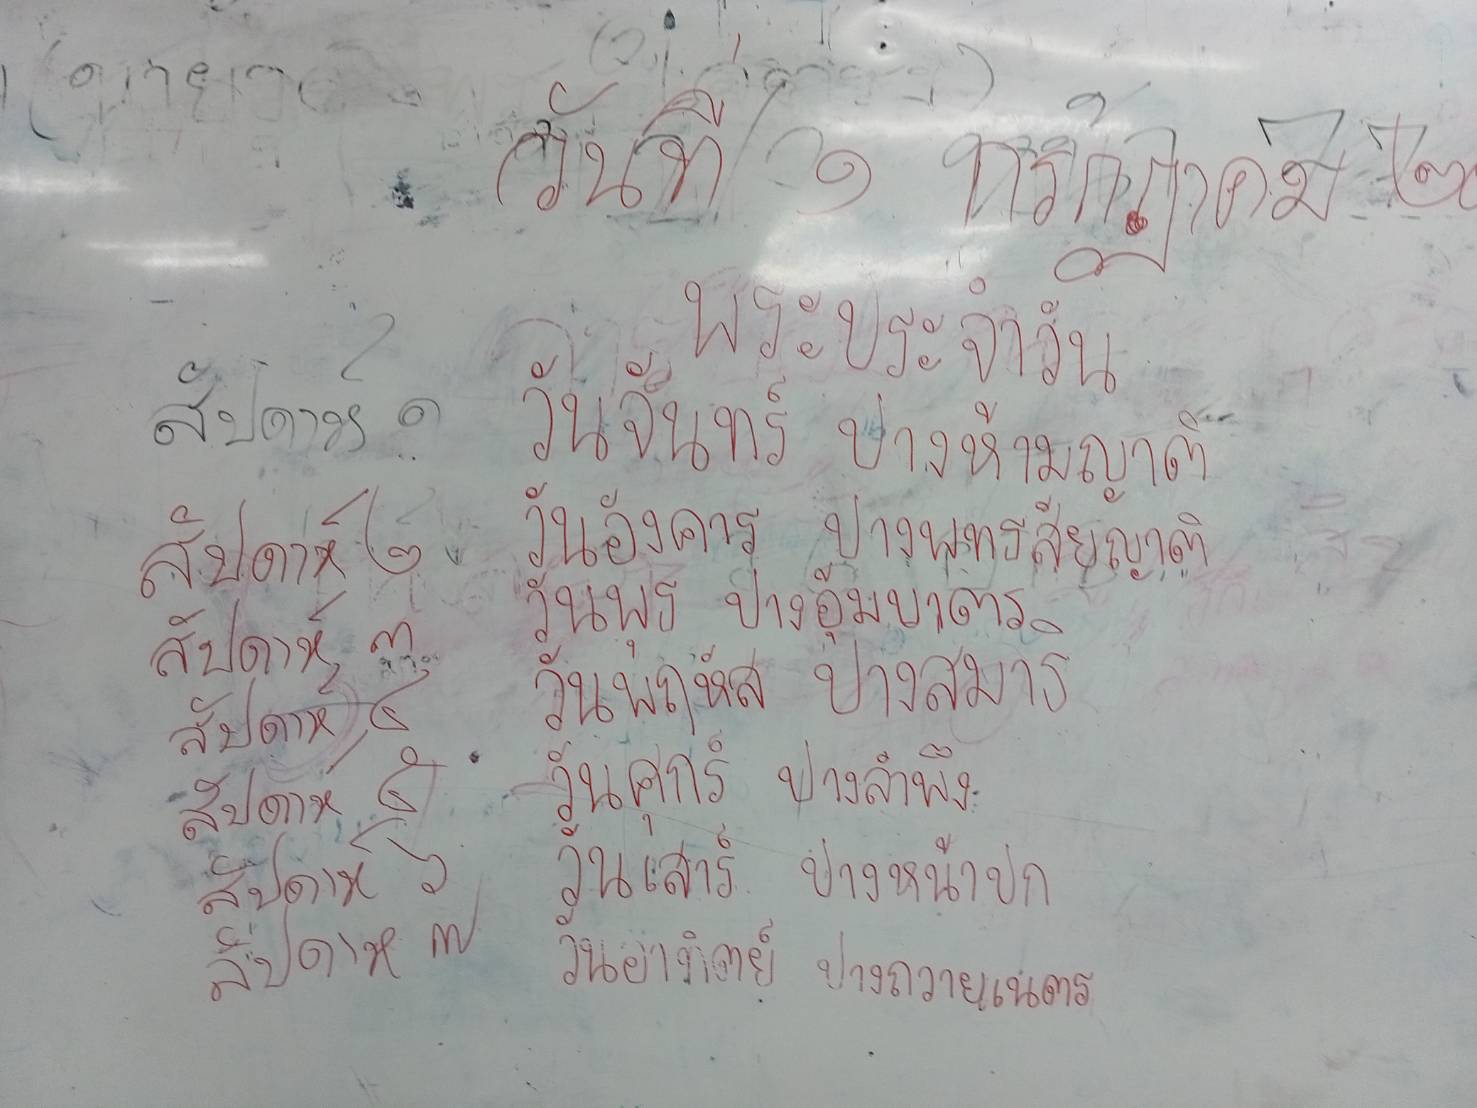 วันที่ ๑ กรกฎาคม ๒
พระประจำวัน
สัปดาห์ ๑ วันจันทร์ ปางห้ามญาติ
สัปดาห์ ๒ วันอังคาร ปางพุทธสัยญาติ
สัปดาห์ ๓ วันพุธ ปางอุ้มบาตร
สัปดาห์ ๔ วันพฤหัส ปางสมาธิ
สัปดาห์ ๕ วันศุกร์ ปางลำพึง
สัปดาห์ ๖ วันเสาร์ ปางหน้าปก
สัปดาห์ ๗ วันอาทิตย์ ปางถวายเนตร